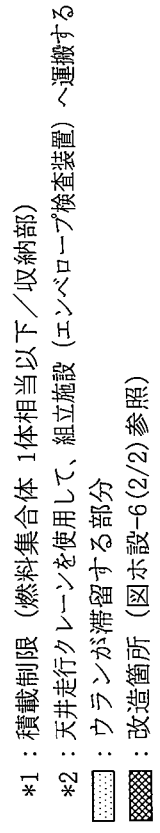 *1 : 積載制限 (燃料集合体 1体相当以下/収納部)
*2 : 天井走行クレーンを使用して、組立施設 (エンベロープ検査装置) へ運搬する
: ウランが滞留する部分
: 改造箇所 (図ホ設-6(2/2)参照)